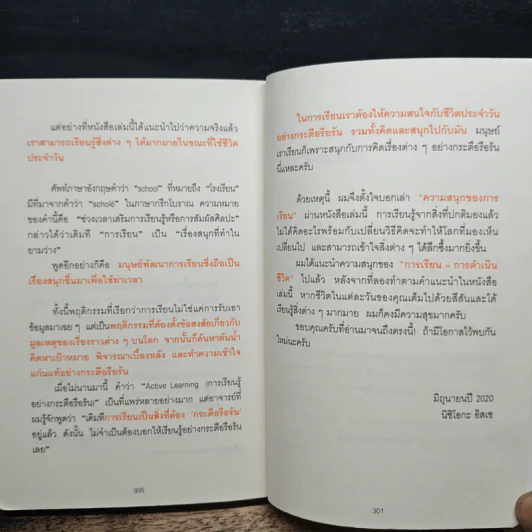 แต่อย่างที่หนังสือเล่มนี้ได้แนะนำไปว่าความจริงแล้ว
เราสามารถเรียนรู้สิ่งต่าง ๆ ได้มากมายในขณะที่ใช้ชีวิต
ประจำวัน
ศัพท์ภาษาอังกฤษคำว่า "school" ที่หมายถึง "โรงเรียน"
มีที่มาจากคำว่า "scholē" ในภาษากรีกโบราณ ความหมาย
ของคำนี้คือ "ช่วงเวลาเสริมการเรียนรู้หรือการสัมผัสศิลปะ"
กล่าวได้ว่าเดิมที "การเรียน" เป็น "เรื่องสนุกที่ทำใน
ยามว่าง"
พูดอีกอย่างก็คือ มนุษย์พัฒนาการเรียนซึ่งถือเป็น
เรื่องสนุกขึ้นมาเพื่อใช้ฆ่าเวลา
ทั้งนี้พฤติกรรมที่เรียกว่าการเรียนไม่ใช่แค่การรับเอา
ข้อมูลมาเฉย ๆ แต่เป็นพฤติกรรมที่ต้องตั้งข้อสงสัยเกี่ยวกับ
มูลเหตุของเรื่องราวต่าง ๆ บนโลก จากนั้นก็ค้นหาต้นน้ำ
คิดหาเป้าหมาย พิจารณาเบื้องหลัง และทำความเข้าใจ
แก่นแท้อย่างกระตือรือร้น
เมื่อไม่นานมานี้ คำว่า "Active Learning (การเรียนรู้
อย่างกระตือรือร้น)" เป็นที่แพร่หลายอย่างมาก แต่อาจารย์ที่
ผมรู้จักพูดว่า "เดิมทีการเรียนเป็นสิ่งที่ต้อง 'กระตือรือร้น'
อยู่แล้ว ดังนั้น ไม่จำเป็นต้องบอกให้เรียนรู้อย่างกระตือรือร้น
เลย"
300
ในการเรียนเราต้องให้ความสนใจกับชีวิตประจำวัน
อย่างกระตือรือร้น รวมทั้งคิดและสนุกไปกับมัน มนุษย์
เราเรียนก็เพราะสนุกกับการคิดเรื่องต่าง ๆ อย่างกระตือรือร้น
นี่แหละครับ
ด้วยเหตุนี้ ผมจึงตั้งใจบอกเล่า "ความสนุกของการ
เรียน" ผ่านหนังสือเล่มนี้ การเรียนรู้จากสิ่งที่ปกติมองแล้ว
ไม่ได้คิดอะไรพร้อมกับเปลี่ยนวิธีคิดจะทำให้โลกที่มองเห็น
เปลี่ยนไป และสามารถเข้าใจสิ่งต่าง ๆ ได้ลึกซึ้งมากยิ่งขึ้น
ผมได้แนะนำความสนุกของ "การเรียน = การดำเนิน
ชีวิต" ไปแล้ว หลังจากที่ลองทำตามคำแนะนำในหนังสือ
เล่มนี้ หากชีวิตในแต่ละวันของคุณเต็มไปด้วยสีสันและได้
เรียนรู้สิ่งต่าง ๆ มากมาย ผมก็คงมีความสุขมากครับ
ขอบคุณครับที่อ่านมาจนถึงตรงนี้! ถ้ามีโอกาสไว้พบกัน
ใหม่นะครับ
มิถุนายนปี 2020
นิชิโอกะ อิสเซ
301